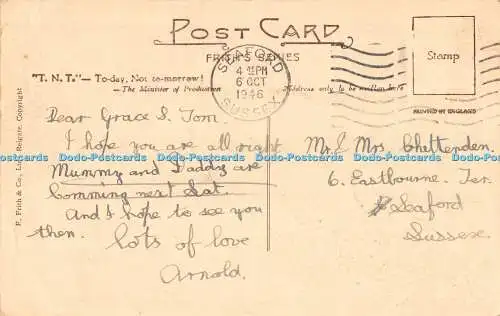 POST CARD
FRITH'S SERIES
"T.N.T." — To-day, Not to-morrow!
— The Minister of Production
Address only to be written here
SEAFORD
4 PM
6 OCT
1946
SUSSEX
Stamp
PRINTED IN ENGLAND
F. Frith & Co., Ltd., Reigate. Copyright
Dear Grace & Tom.
I hope you are all right
Mummy and Daddy are
Comming next Sat.
And I hope to see you
then.
lots of love
Arnold.
Mr. & Mrs. Chettenden.
6. Eastbourne. Ter.
Seaford
Sussex.
Dodo-Postcards Dodo-Postcards Dodo-Postcards Dodo-Postcards Dodo-Postcards Dodo-Postcards